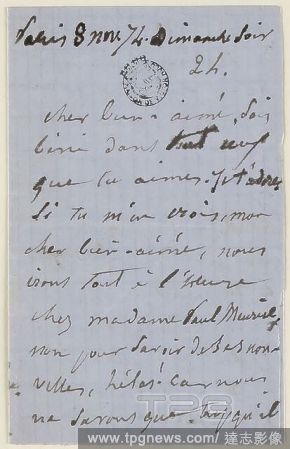 Paris 8 nov. 74. Dimanche soir
2 h.
cher bien-aimé, sois
béni dans tout ce
que tu aimes. Je t'adore.
Si tu m'en crois, mon
cher bien-aimé, nous
irons tout à l'heure
chez madame Paul Meurice,
non pour savoir de ses nou-
velles, hélas! car nous
ne savons que trop qu'il
TPG
www.tpgnews.com / 達志影像